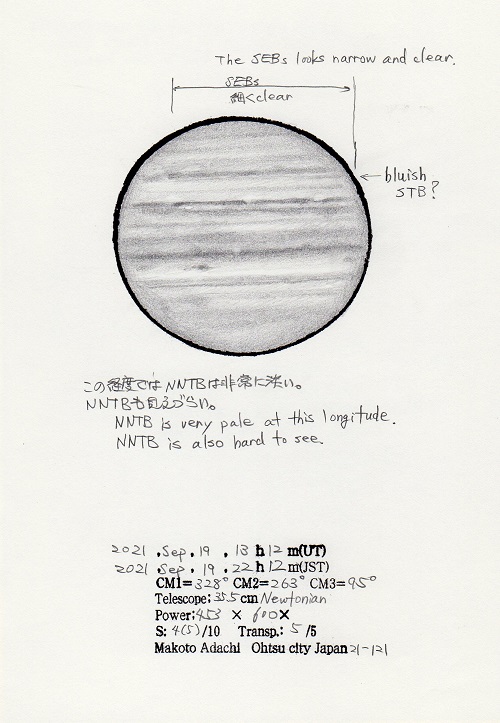 The SEBs looks narrow and clear.
SEBs
細くclear
bluish
STB?
この経度ではNNTBは非常に淡い。
NNTBも見えづらい。
NNTB is very pale at this longitude.
NNTB is also hard to see.
2021 . Sep . 19 . 13 h 12 m(UT)
2021 . Sep . 19 . 22 h 12 m(JST)
CM1= 328° CM2= 263° CM3= 95°
Telescope: 35.5 cm Newtonian
Power: 453 × 600×
S: 4(5) /10 Transp.: 5 /5
Makoto Adachi Ohtsu city Japan 21-121